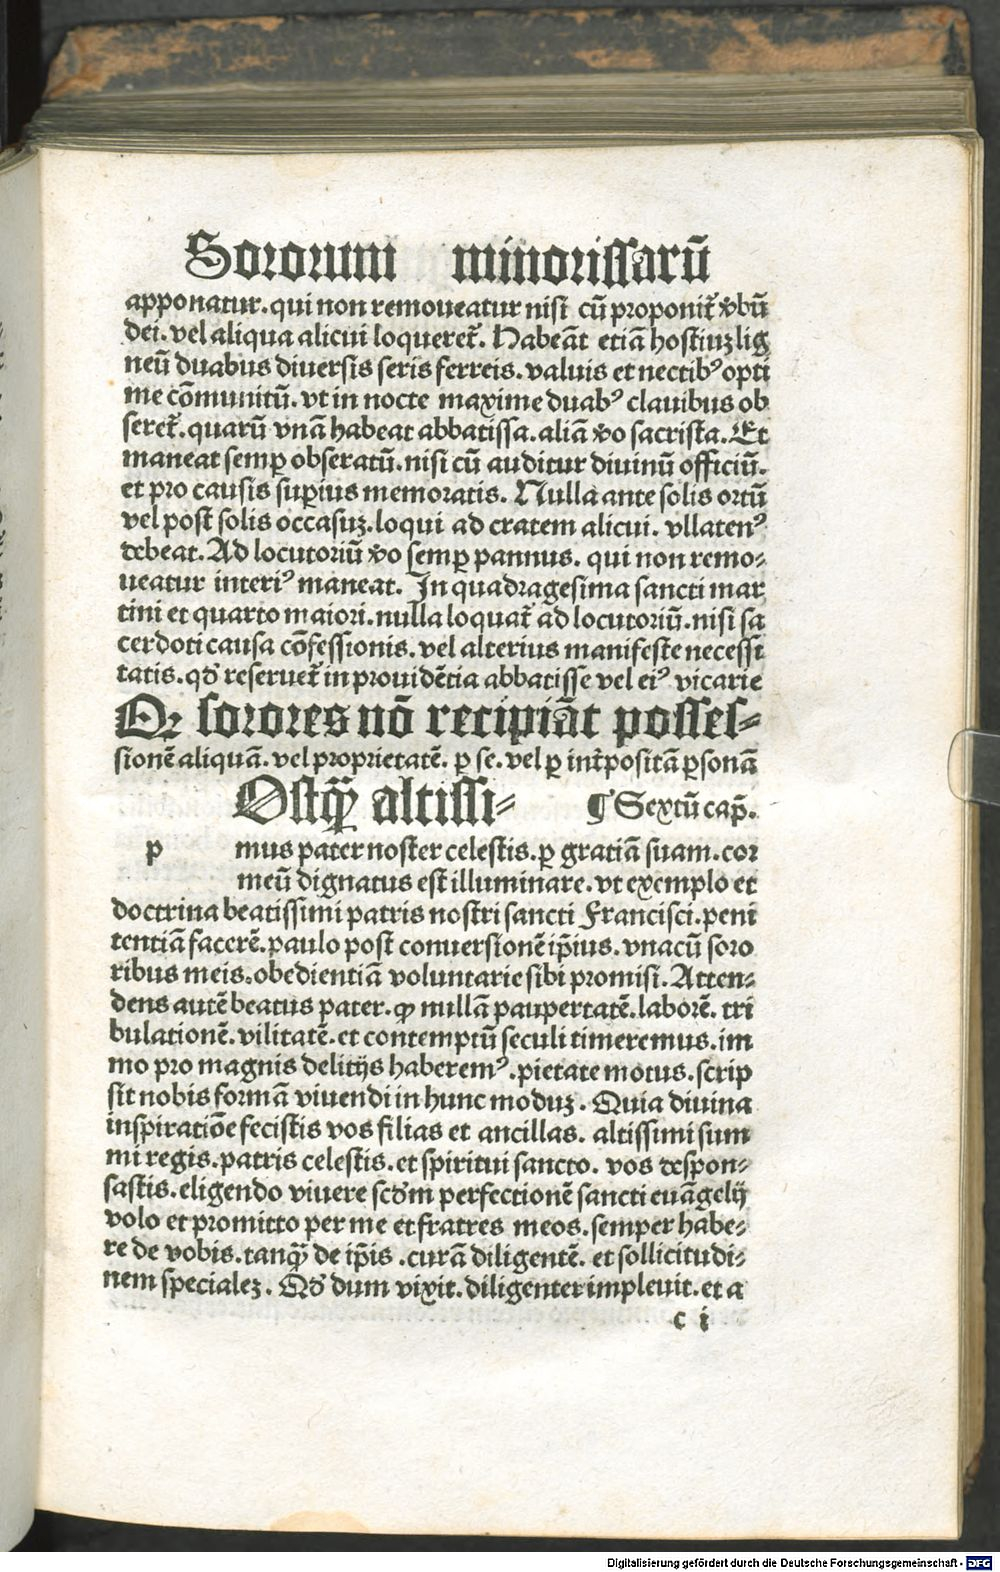 Sororum minorissarū
apponatur. qui non remoueatur nisi cū proponit᷑ v̾bū
dei. vel aliqua alicui loqueret᷑. Habeāt etiā hostiuꝫ lig
neū duabus diuersis seris ferreis. valuis et nectibꝰ opti
me cōmunitū. vt in nocte maxime duabꝰ clauibus ob
seret᷑. quarū vnā habeat abbatissa. aliā v̾o sacrista. Et
maneat semꝑ obseratū. nisi cū auditur diuinū officiū.
et pro causis suꝑius memoratis. Nulla ante solis ortū
vel post solis occasuꝫ. loqui ad cratem alicui. vllatenꝰ
debeat. Ad locutoriū v̾o semꝑ pannus. qui non remo⸗
ueatur interiꝰ maneat. In quadragesima sancti mar
tini et quarto maiori. nulla loquat᷑ ad locutoriū. nisi sa
cerdoti causa cōfessionis. vel alterius manifeste necessi
tatis. qd̾ reseruet᷑ in prouidētia abbatisse vel eiꝰ vicarie
Qꝛ sorores nō recipiāt posses⸗
sionē aliquā. vel proprietatē. ꝑ se. vel ꝑ int̾positā ꝑsonā
Ostq̄ꝫ altissi⸗ ¶ Sextū cap̄.
p mus pater noster celestis. ꝑ gratiā suam. cor
meū dignatus est illuminare. vt exemplo et
doctrina beatissimi patris nostri sancti Francisci. peni
tentiā facerē. paulo post conuersionē ip̄ius. vnacū soro
ribus meis. obedientiā voluntarie sibi promisi. Atten⸗
dens autē beatus pater. ꝙ nullā paupertatē. laborē. tri
bulationē. vilitatē. et contemptū seculi timeremus. im
mo pro magnis delitijs haberemꝰ. pietate motus. scrip
sit nobis formā viuendi in hunc moduꝫ. Quia diuina
inspiratiōe fecistis vos filias et ancillas. altissimi sum
mi regis. patris celestis. et spiritui sancto. vos despon⸗
sastis. eligendo viuere scd̾m perfectionē sancti euāgelij
volo et promitto per me et fratres meos. semper habe⸗
re de vobis. tanq̄ꝫ de ip̄is. curā diligentē. et sollicitudi⸗
nem specialeꝫ. Qd̾ dum vixit. diligenter impleuit. et a
c i
Digitalisierung gefördert durch die Deutsche Forschungsgemeinschaft - DFG